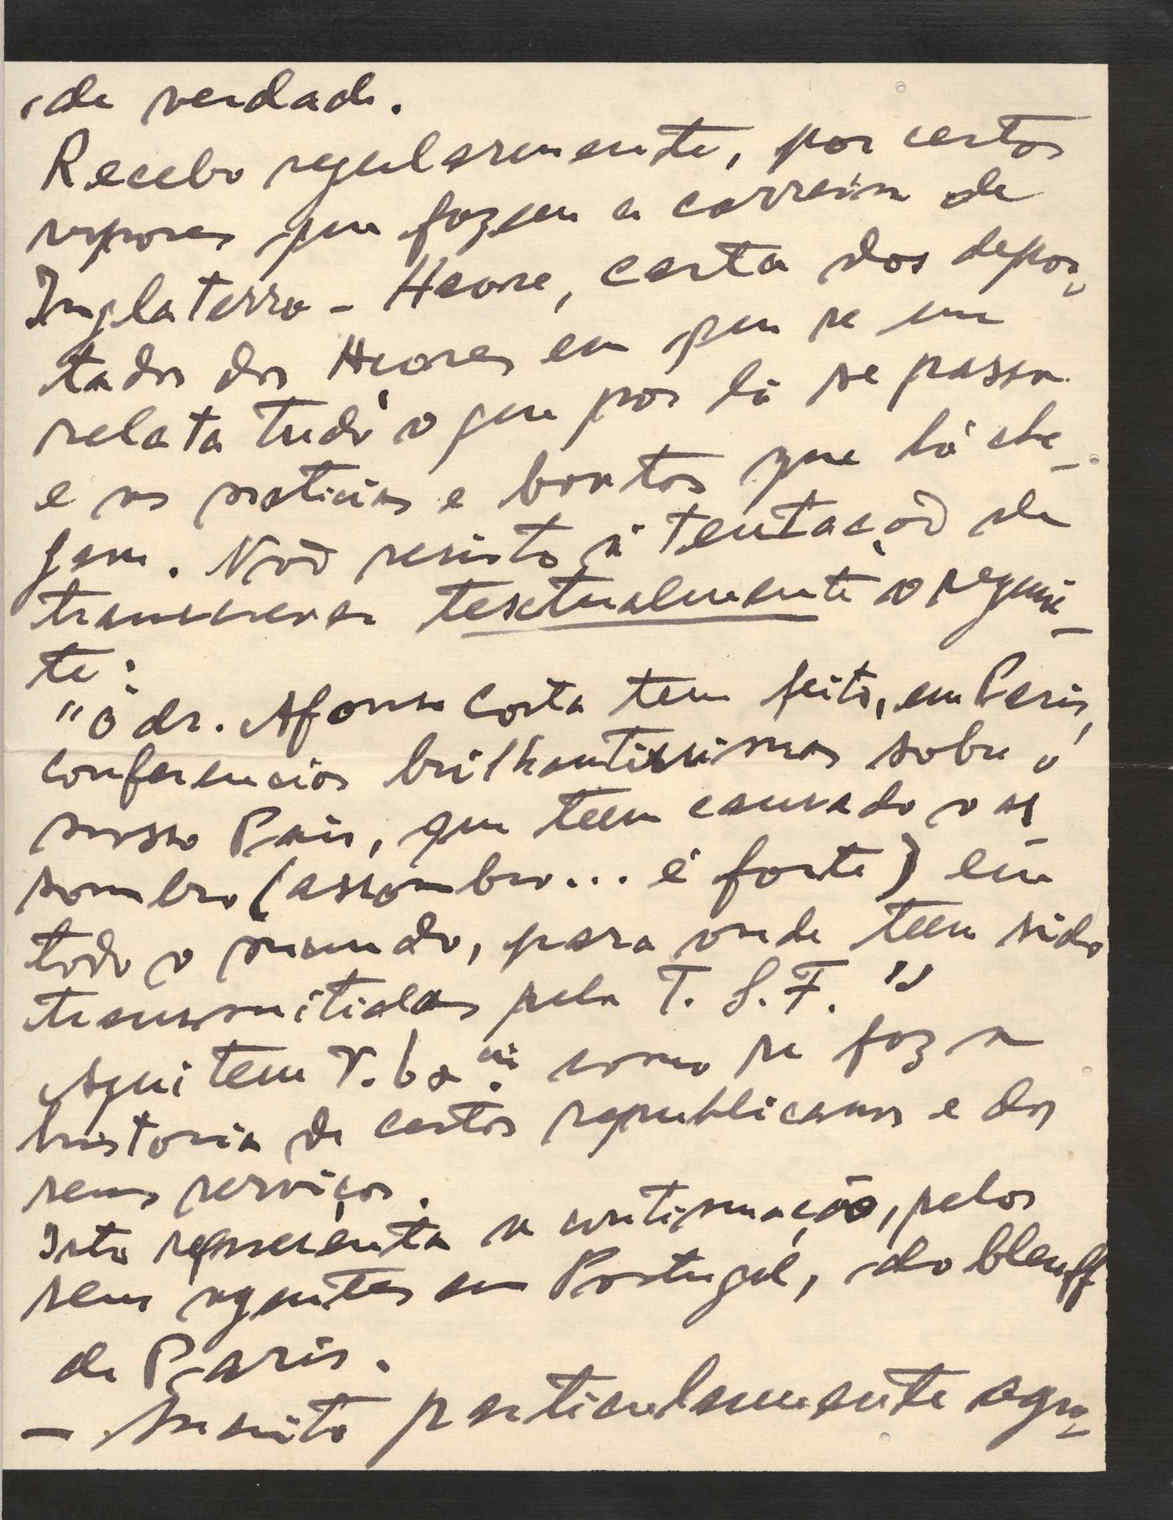 de verdade.
Recebo regularmente, por certos
vapores que fazem a carreira de
Inglaterra - Havre, carta dos depor-
tados dos Açores em que se me
relata tudo o que por lá se passa
e as noticias e boatos que lá che-
gam. Não resisto á tentação de
transcrever textualmente o seguin-
te:
"O dr. Afonso Costa tem feito, em Paris,
conferencias brilhantissimas sobre o
nosso Pais, que teem causado o as-
sombro (assombro... é forte) em
todo o mundo, para onde teem sido
transmitidas pela T. S. F."
Aqui tem V. como se faz a
historia de certos republicanos e dos
seus serviços.
Isto representa a continuação, pelos
seus agentes em Portugal, do bleuff
de Paris.
- Muito particularmente agra-